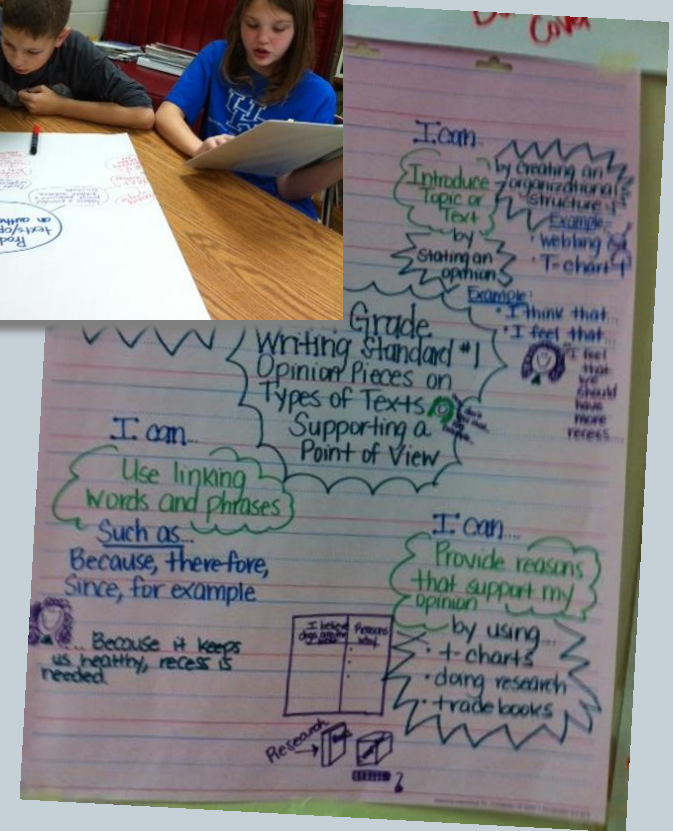 Cover
I can...
Introduce
Topic or
Text
by
Stating an
opinion
by creating an
organizational
structure
Example:
• webbing
• T-chart
Example:
• I think that...
• I feel that...
I feel
that
we
should
have
more
recess...
Grade
Writing Standard #1
Opinion Pieces on
Types of Texts
Supporting a
Point of View
I can...
Use linking
words and phrases
Such as...
Because, therefore,
Since, for example
... Because it keeps
us healthy, recess is
needed.
I can...
Provide reasons
that support my
opinion
by using...
• t-charts
• doing research
• trade books
I believe
dogs are the
Reasons
why
Research